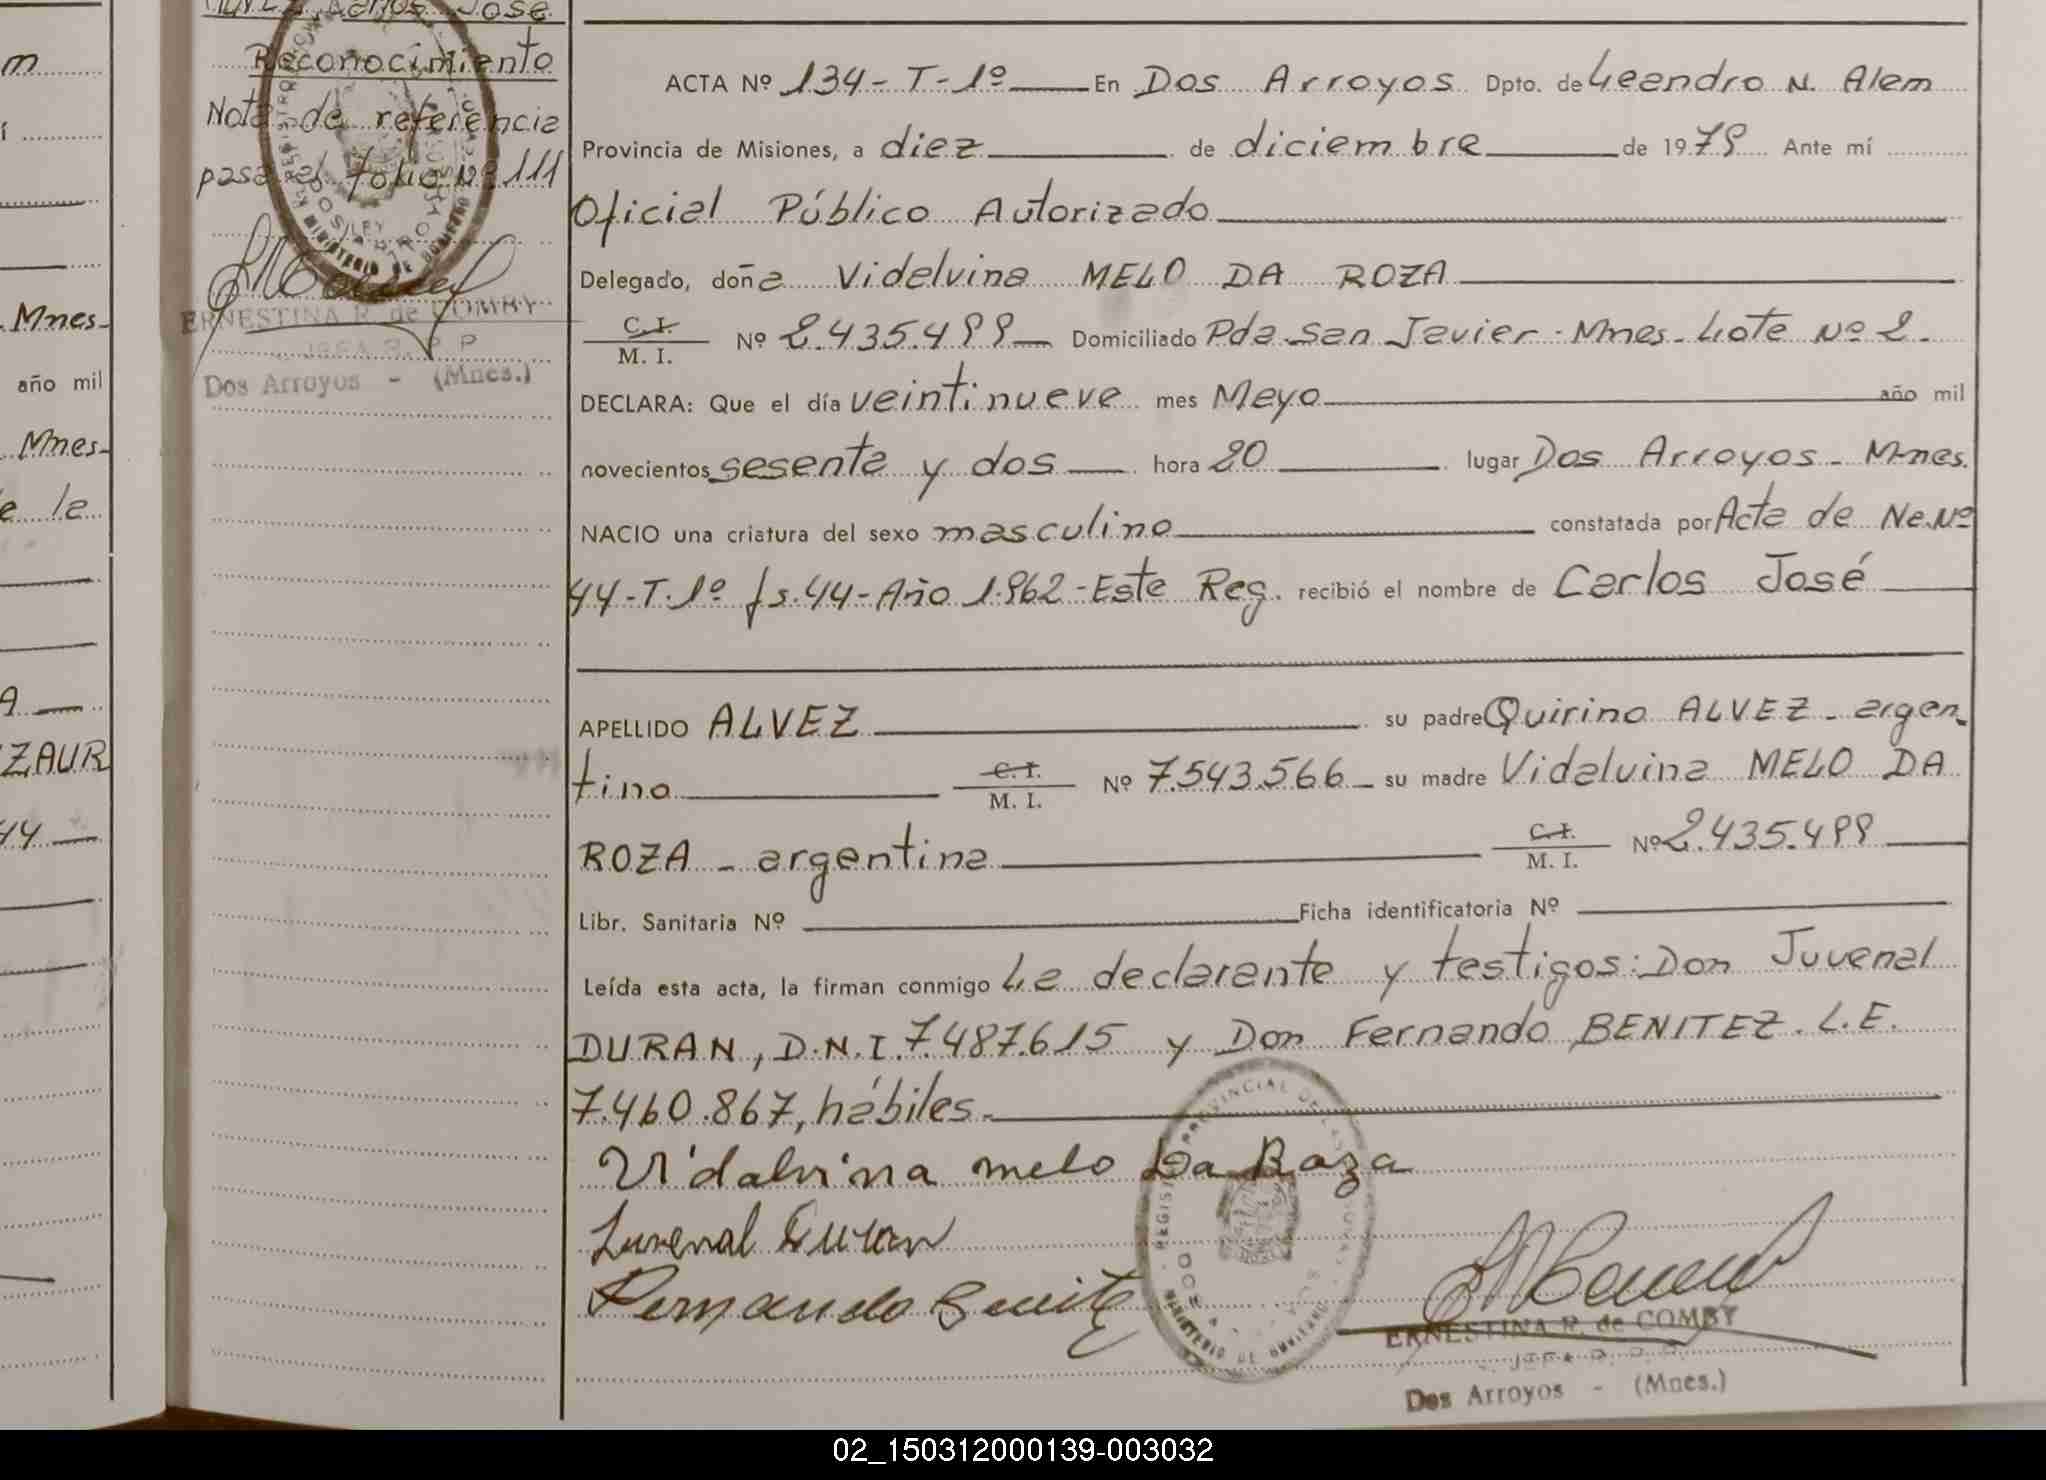 m
í
Mnes-
año mil
Mnes-
e la
A
ZAUR
44
ALVEZ, Carlos José
Reconocimiento
Nota de referencia
pasa al folio Nº 111
ERNESTINA R. de COMBY
JEFA R. P. P.
Dos Arroyos - (Mnes.)
ACTA Nº 134-T-1º En Dos Arroyos Dpto. de Leandro N. Alem
Provincia de Misiones, a diez de diciembre de 1979 Ante mí
Oficial Público Autorizado
Delegado, doña Videlvina MELO DA ROZA
C. I.
M. I. Nº 2.435.499 Domiciliado Pda. San Javier - Mnes. Lote Nº 2.
DECLARA: Que el día veintinueve mes Mayo año mil
novecientos sesenta y dos hora 20 lugar Dos Arroyos - Mnes.
NACIO una criatura del sexo masculino constatada por Acta de Ne. Nº
44-T.1º fs.44-Año 1.962-Este Reg. recibió el nombre de Carlos José
APELLIDO ALVEZ su padre Quirino ALVEZ - argen-
tino C. I. M. I. Nº 7.543.566 su madre Videlvina MELO DA
ROZA - argentina C. I. M. I. Nº 2.435.499
Libr. Sanitaria Nº Ficha identificatoria Nº
Leída esta acta, la firman conmigo La declarante y testigos: Don Juvenal
DURAN, D.N.I. 7.487.615 y Don Fernando BENITEZ. L.E.
7.460.867, hábiles.-
Vidalvina melo Da Roza
Juvenal Duran
Fernando Benitez
ERNESTINA R. de COMBY
JEFA R. P. P.
Dos Arroyos - (Mnes.)
02_150312000139-003032